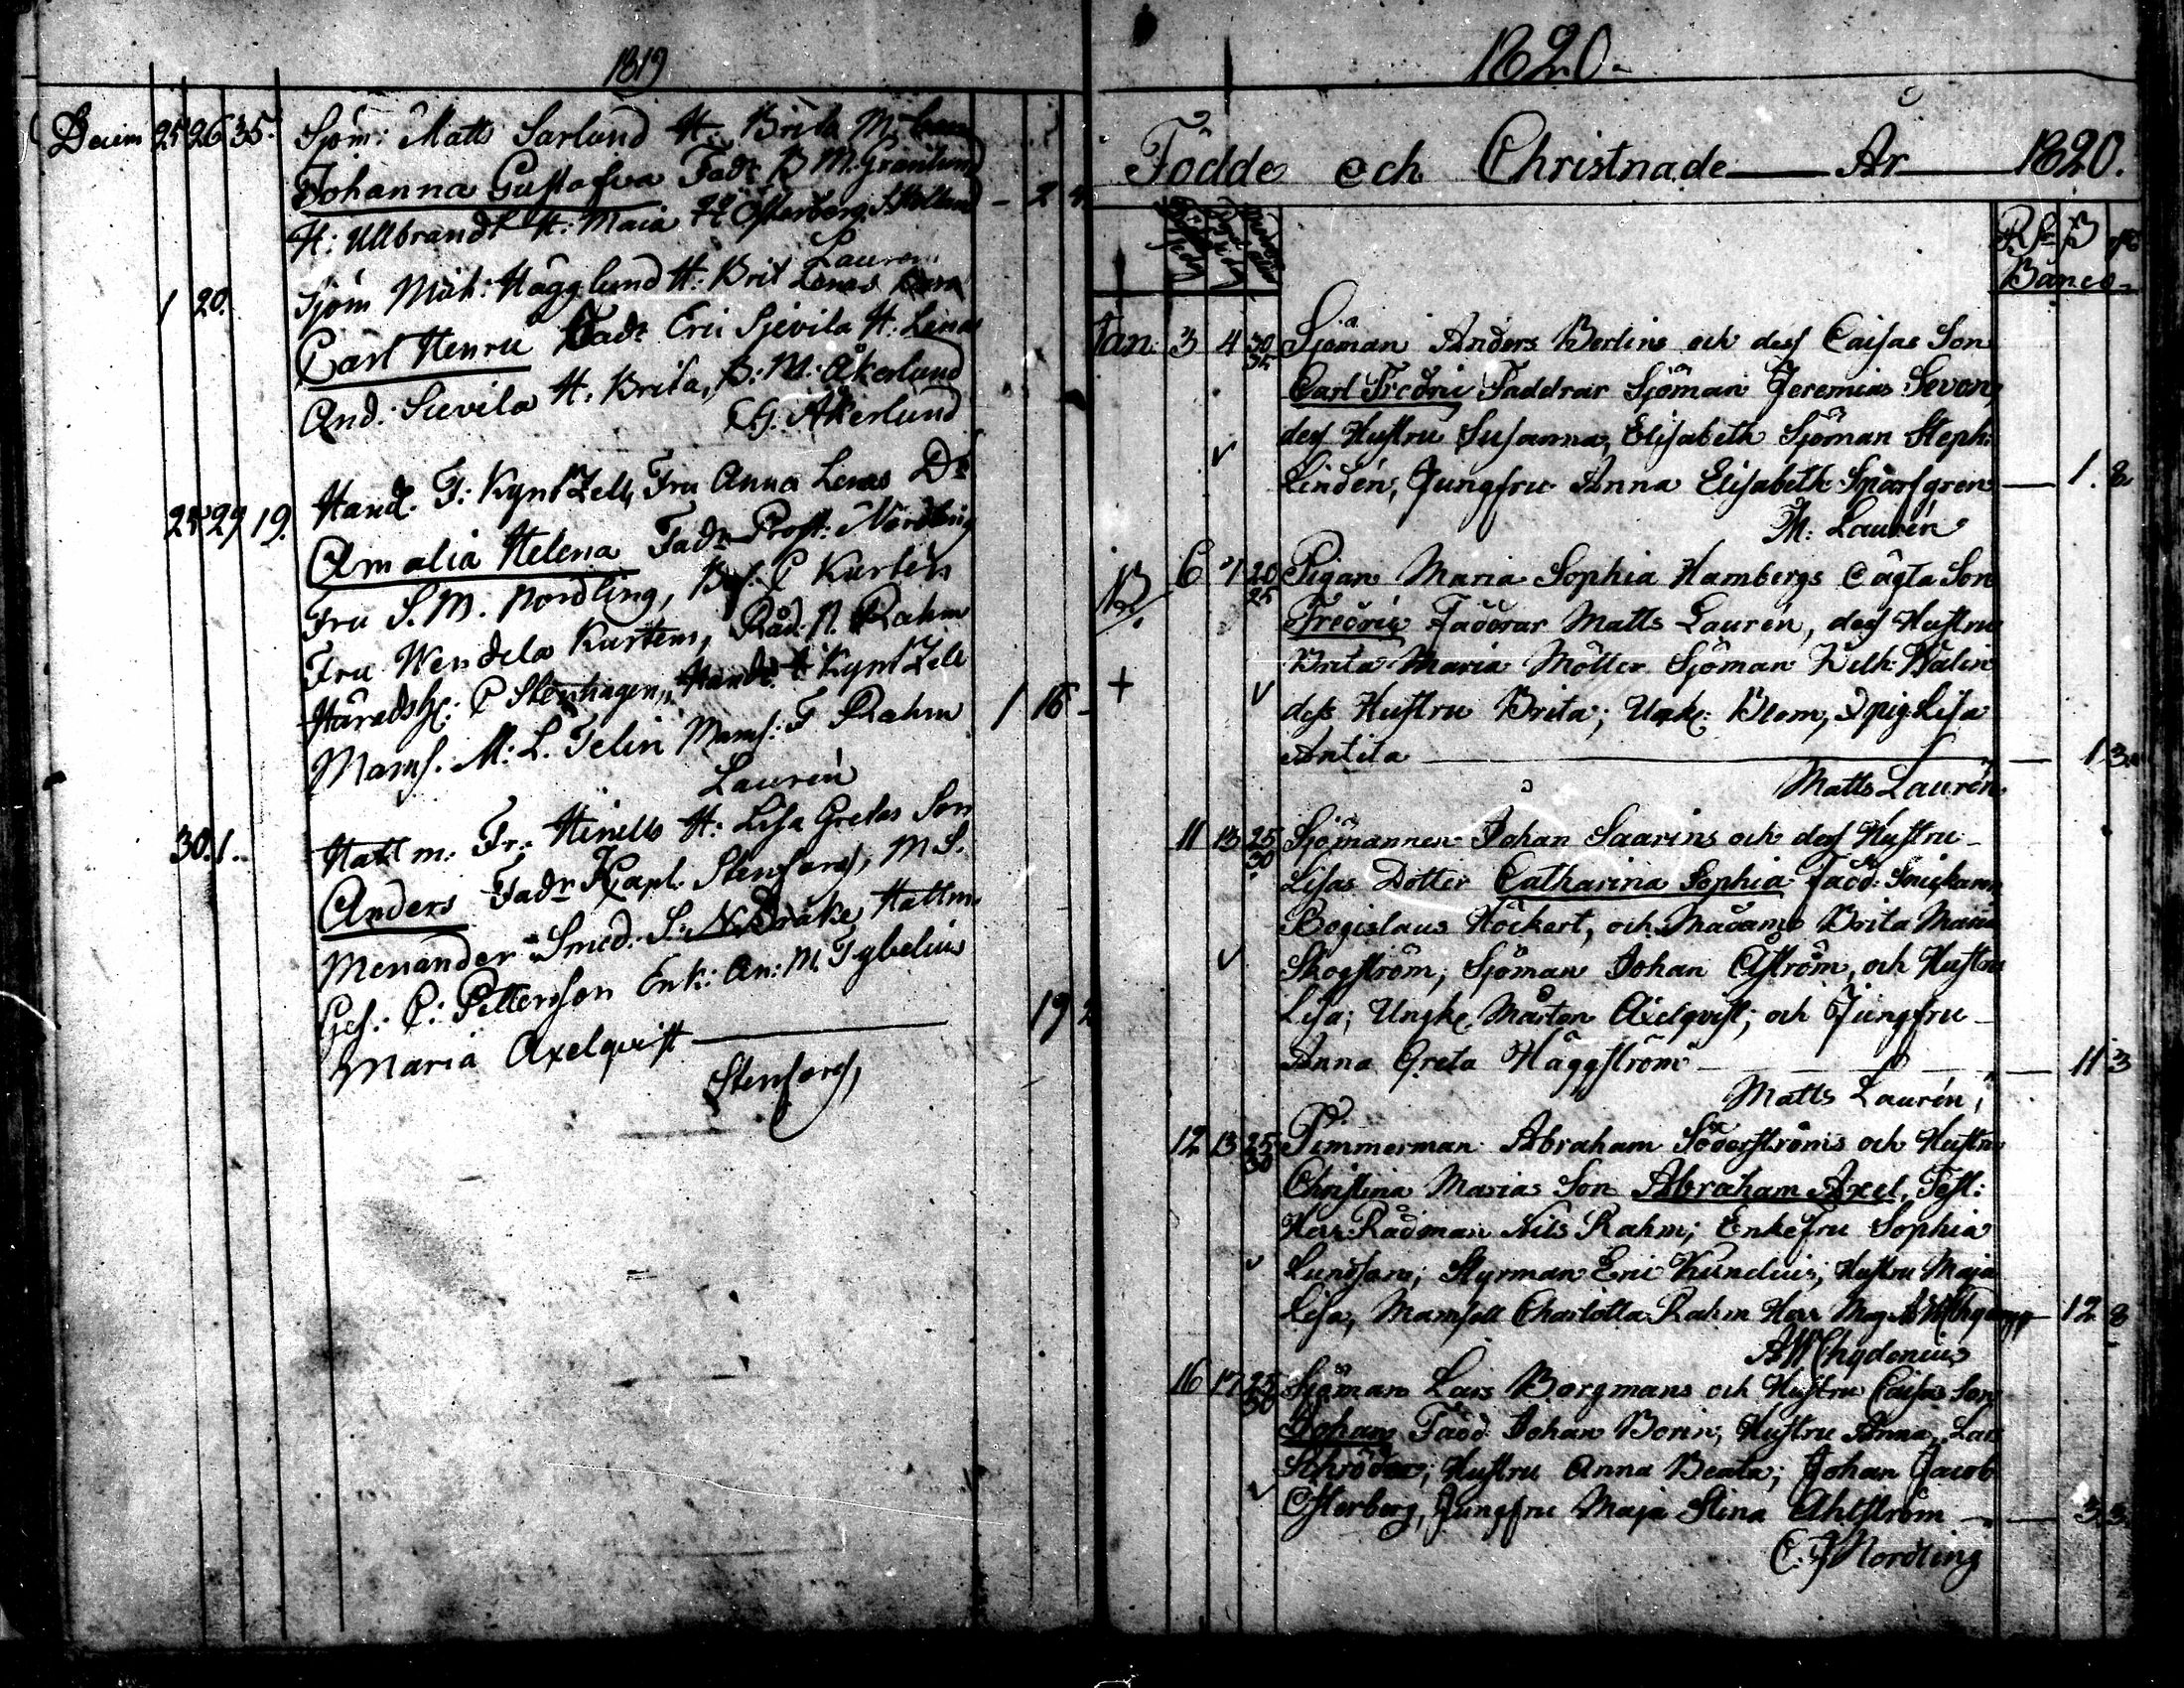 1819
Decem 25 26 35. Sjöm: Matts Sarlund H: Brita M:
Johanna Gustafva Fadr B M. Granlund
H: Ullbrandt H: Maia H Österberg S. Hollan — 2
Lauren
1 20. Sjöm Mich: Hägglund H: Brit Lenas
Carl Henric Fadr Eric Sjevila H: Lena
And: Sievila H. Brita, B: M: Åkerlund
C. G. Åkerlund
28 29 19. Hand. F: Kyntzell Fru Anna Lenas Dr
Amalia Helena Fadr Prost: Nordling
Fru S. M. Nordling, C Kurtén
Fru Wendela Kurten, Råd: N. Rahm
Häradsh: C Stenhagen, Hand: Kyntzell
Mams. M: L. Telin Mams: F Rahm 1 16 -
Laurén
30. 1. Hattm: Fr: Hinells H: Lisa Gretas Son
Anders Fadr Kapl. Stenfors, M S.
Menander Smed. S: N. Dråke, Hattm
Ges. P: Petterson Enk: An: M. Tybelius
Maria Axelqvist — 19 2
Stenfors,
1820.
Födde och Christnade — År — 1820.
Rd ß
Banco
Jan. 3 4 30 35 Sjöman Anders Berlins och dess Caisas Son
Carl Fredric Faddrar Sjöman Jeremias Sevon,
dess Hustru Susanna, Elisabeth Sjöman Steph:
Lindén, Jungfru Anna Elisabeth Sparfgren — 1. 8
M: Laurén
6 7 20 25 Pigan Maria Sophia Hambergs Oägta Son
Fredric Faddrar Matts Laurén, dess Hustru
Brita Maria Möller Sjöman Wilh: Walin
dess Hustru Brita; Ungk: Blom, pig: Lisa
Antila — 1 3
Matts Laurén
11 13 25 30 Sjömannen Johan Saarins och dess Hustru
Lisas Dotter Catharina Sophia Fadd: Snickaren
Bogislaus Höckert, och Madame Brita Maria
Skogström; Sjöman Johan Åström, och Hustru
Lisa; Ungk: Mårten Axelqvist; och Jungfru
Anna Greta Häggström — 11 3
Matts Laurén,
12 13 25 30 Timmerman Abraham Söderströms och Hustru
Christina Marias Son Abraham Axel, Test:
Herr Rådman Nils Rahm; Enkefru Sophia
Lundsan; Styrman Eric Kundius, Hustru Maja
Lisa, Mamsell Charlotta Rahm Herr Mag — 12 8
A W Chydenius
16 17 25 30 Sjöman Lars Borgmans och Hustru Caisas Son
Johan Fadd: Johan Borin, Hustru Anna, Lars
Schröder; Hustru Anna Beata; Johan Jacob
Österberg, Jungfru Maja Stina Ahlström — 3. 3.
C. J Nordling